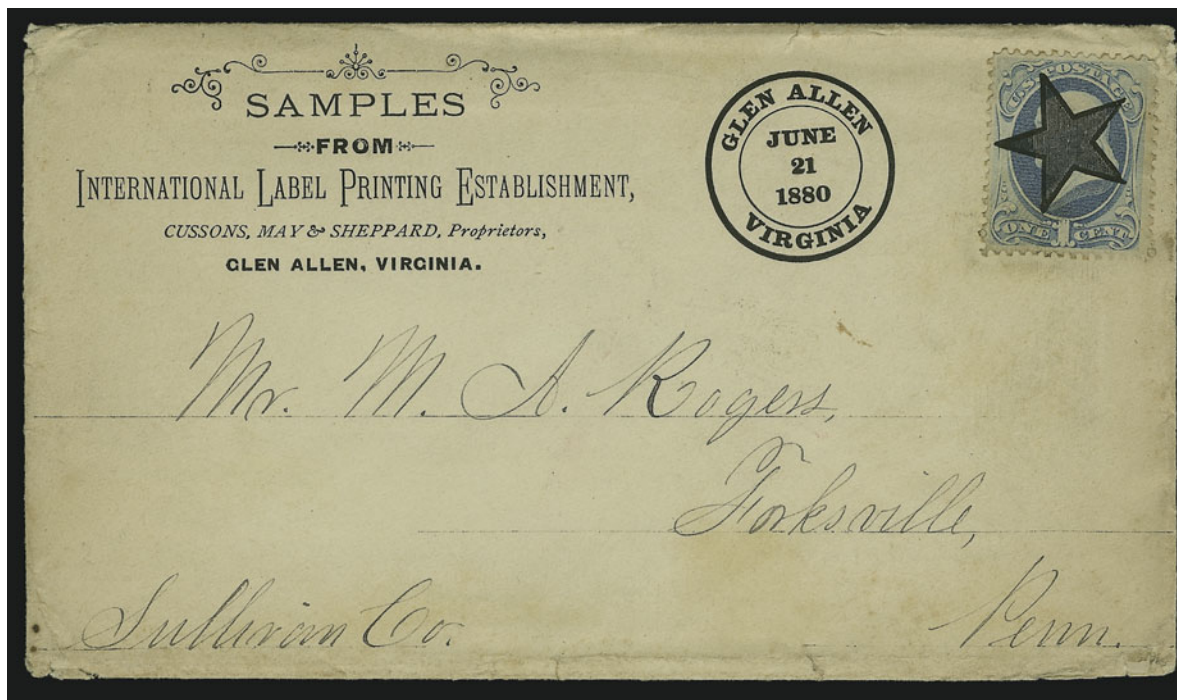 SAMPLES
FROM
INTERNATIONAL LABEL PRINTING ESTABLISHMENT,
CUSSONS, MAY & SHEPPARD, Proprietors,
GLEN ALLEN, VIRGINIA.
GLEN ALLEN
JUNE
21
1880
VIRGINIA
U.S. POSTAGE
ONE 1 CENT
Mr. M. A. Rogers,
Forksville,
Sullivan Co. Penn.